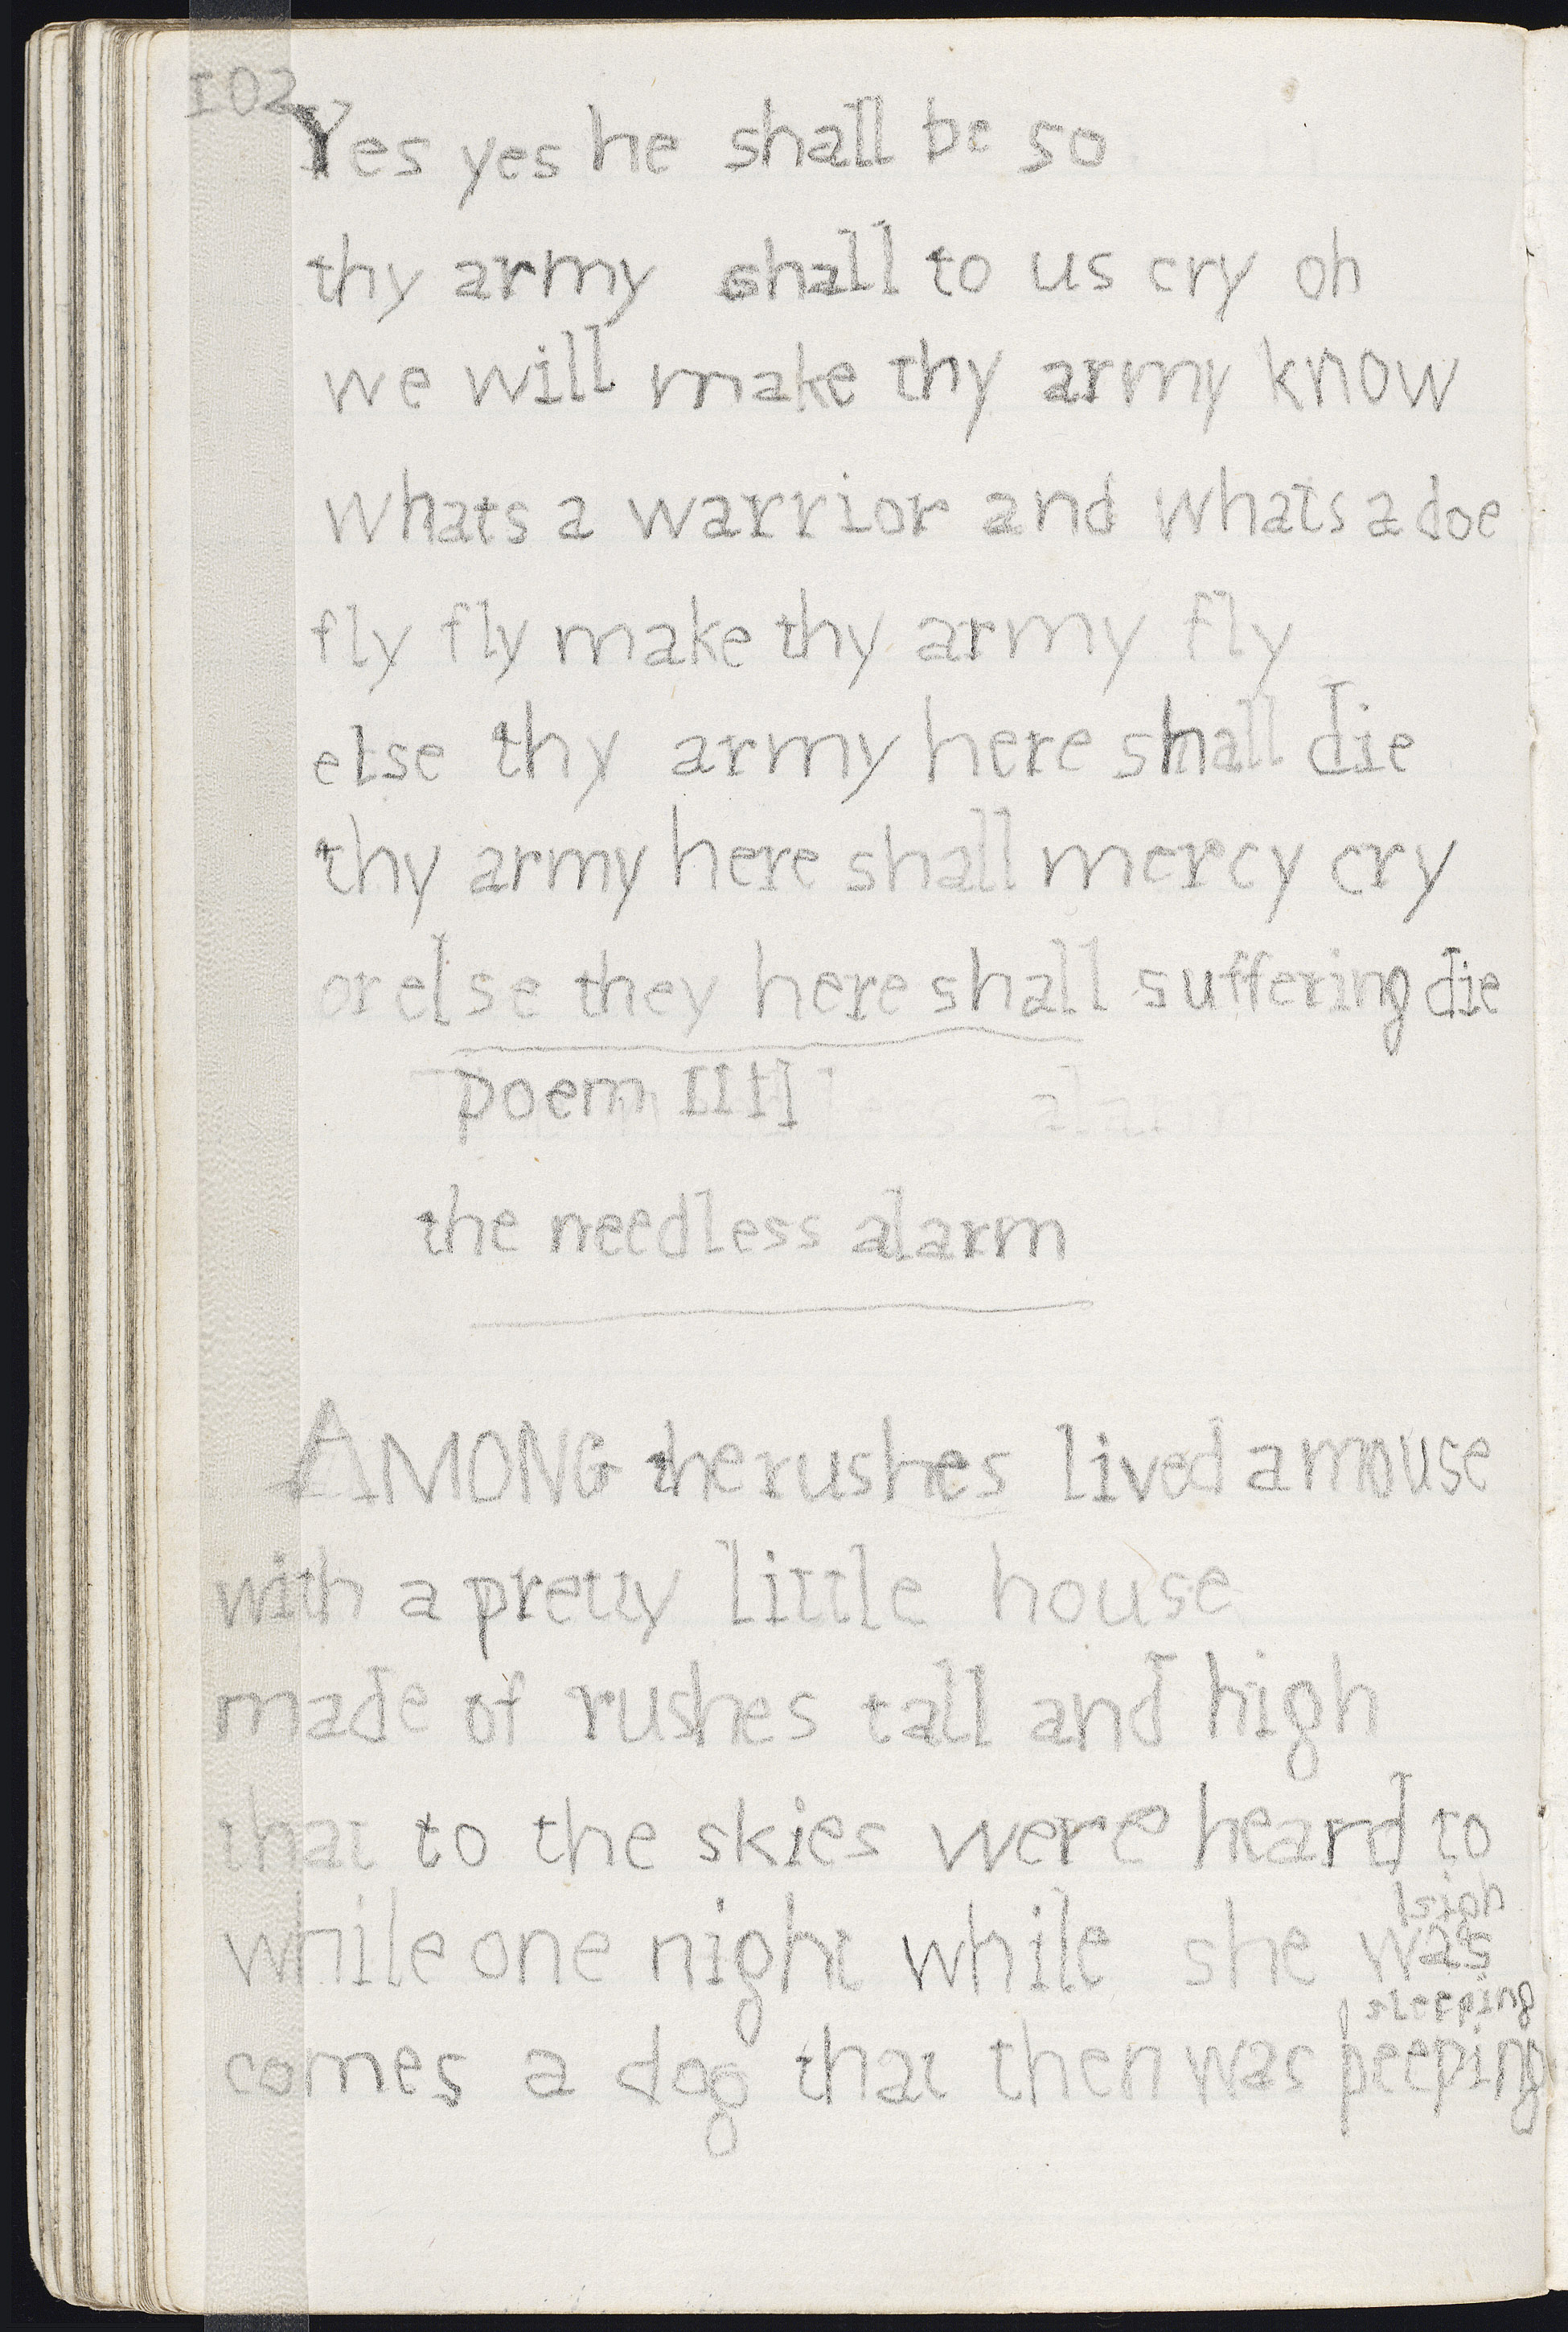 102
Yes yes he shall be so
thy army shall to us cry oh
we will make thy army know
whats a warrior and whats a doe
fly fly make thy army fly
else thy army here shall die
thy army here shall mercy cry
or else they here shall suffering die
poem III]
the needless alarm
AMONG the rushes lived a mouse
with a pretty little house
made of rushes tall and high
that to the skies were heard to
[sigh
while one night while she was
[sleeping
comes a dog that then was peeping